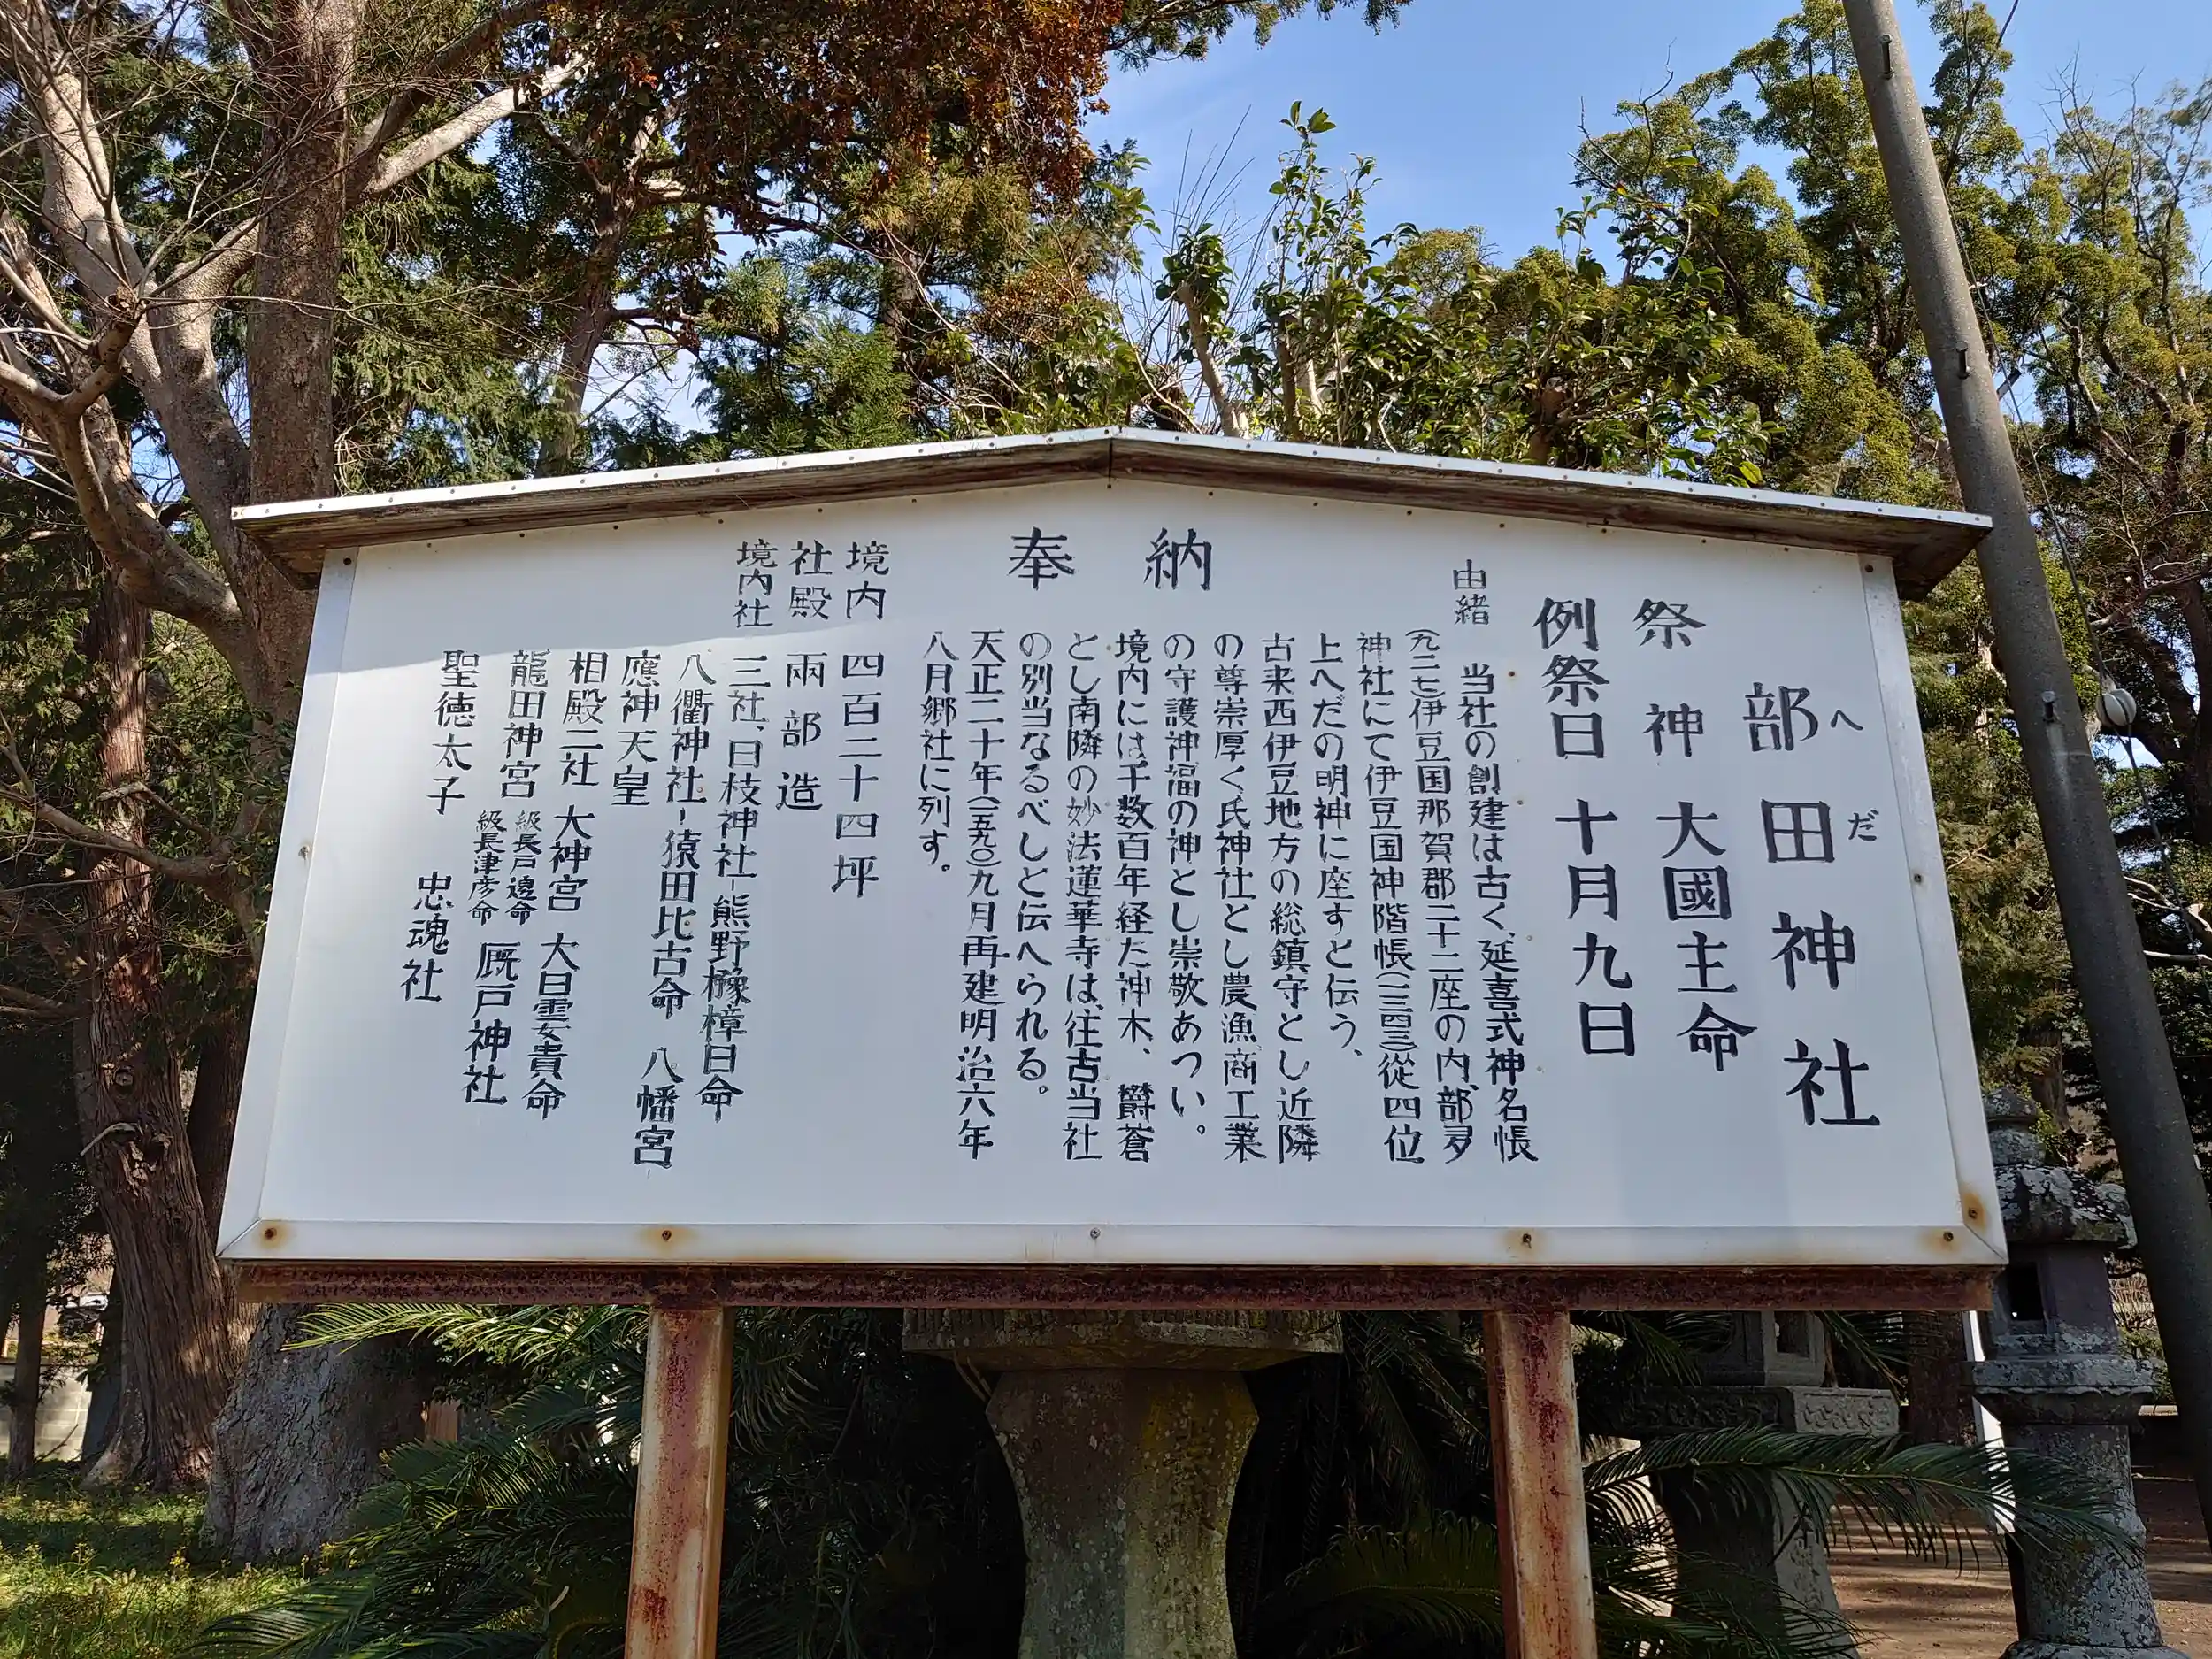 部田神社
へだ
祭神 大國主命
例祭日 十月九日
奉納
由緒
当社の創建は古く、延喜式神名帳
(九二七)伊豆国那賀郡二十二座の内、部夛
神社にて伊豆国神階帳(一三四三)従四位
上へだの明神に座すと伝う、
古来西伊豆地方の総鎮守とし近隣
の尊崇厚く氏神社とし農漁商工業
の守護神福の神とし崇敬あつい。
境内には千数百年経た神木、欝蒼
とし南隣の妙法蓮華寺は、往古当社
の別当なるべしと伝へられる。
天正二十年(一五九〇)九月再建明治六年
八月郷社に列す。
境内 四百二十四坪
社殿 兩部造
境内社 三社、日枝神社-熊野櫲樟日命
八衢神社-猿田比古命 八幡宮-
應神天皇
相殿二社 大神宮 大日孁貴命
龍田神宮 級長戸邊命 級長津彦命 厩戸神社
聖徳太子 忠魂社